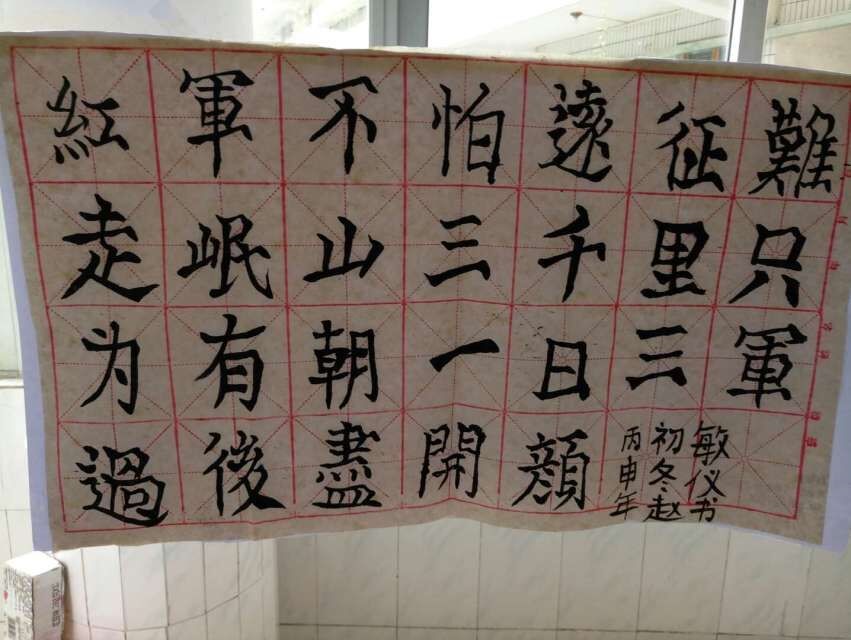 紅軍不怕遠征難
走岷山三千里只
为有朝一日三軍
過後盡開顏
丙申年
初冬赵
敏仪书